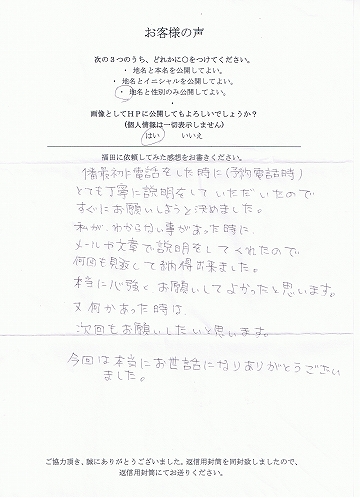 お客様の声
次の3つのうち、どれかに○をつけてください。
・ 地名と本名を公開してよい。
・ 地名とイニシャルを公開してよい。
・ 地名と性別のみ公開してよい。
・
画像としてHPに公開してもよろしいでしょうか？
(個人情報は一切表示しません)
はい いいえ
福田に依頼してみた感想をお書きください。
最初に電話をした時に(予約電話時)
とても丁寧に説明をしていただいたので
すぐにお願いしようと決めました。
私が、わからない事があった時に、
メールや文章で説明をしてくれたので
何回も見返して納得出来ました。
本当に心強くお願いしてよかったと思います。
又何かあった時は、
次回もお願いしたいと思います。
今回は本当にお世話になりありがとうござい
ました。
ご協力頂き、誠にありがとうございました。返信用封筒を同封致しましたので、
返信用封筒にてお送りください。